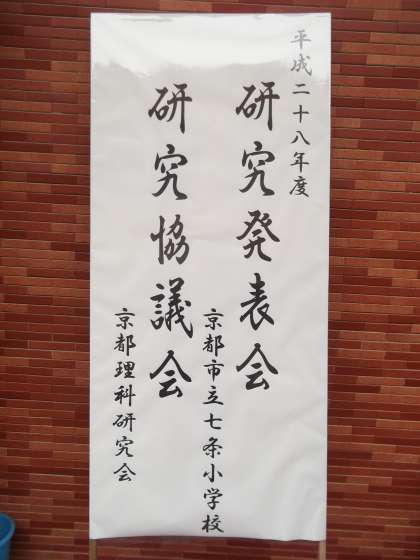 平成二十八年度
研究発表会
京都市立七条小学校
研究協議会
京都理科研究会